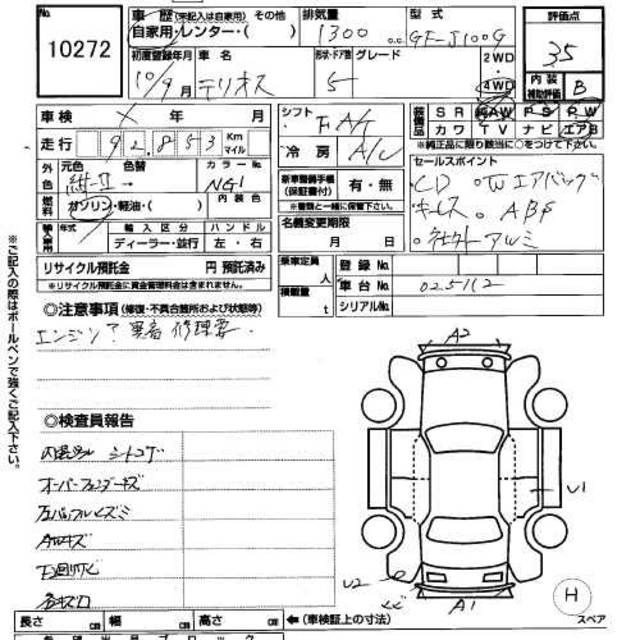 No.
10272
車 歴 (未記入は自家用) その他
自家用・レンター・( )
排気量
1300 c.c
型 式
GF-J100G
評価点
35
内装
補助評価 B
初度登録年月
10/9月
車 名
テリオス
形状・ドア数
5
グレード
2WD
・
4WD
車検 × 年 月
走行 92,853 Km
マイル
外色
元色 色替
紺-Ⅱ→
カラー No.
NG1
燃料
ガソリン・軽油・( )
内装色
輸入車用
年式
輸入区分
ディーラー・並行
ハンドル
左・右
リサイクル預託金 円 預託済み
※リサイクル預託金に資金管理料金は含まれません。
シフト
FAT
冷房 A/C
新車整備手帳
(保証書付)
有・無
※書類と一緒に保管下さい。
名義変更期限
月 日
乗車定員 人
積載量 t
装備品
SR AW PS PW
カワ TV ナビ エアB
※純正品に限り該当に○をつけて下さい。
セールスポイント
CD ○Wエアバック
キーレス ○ABS
○社外アルミ
登録No.
車台No. 025112
シリアルNo.
◎注意事項 (修復・不具合箇所および状態等)
エンジン? 異音 修理要.
※ご記入の際はボールペンで強くご記入下さい。
◎検査員報告
内装汚れ シートコゲ
オーバーフェンダーキズ
AWキズ
下廻りサビ
各キズ凹
A2
U1
U2
A1
H
スペア
長さ cm 幅 cm 高さ cm ←(車検証上の寸法)